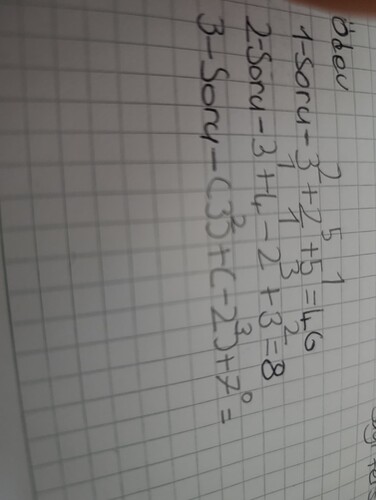 Ödev
1-Soru-3²+2⁵+5¹=46
2-Soru-3¹+4¹-2³+3²=8
3-Soru-(3²)+(-2³)+7⁰=